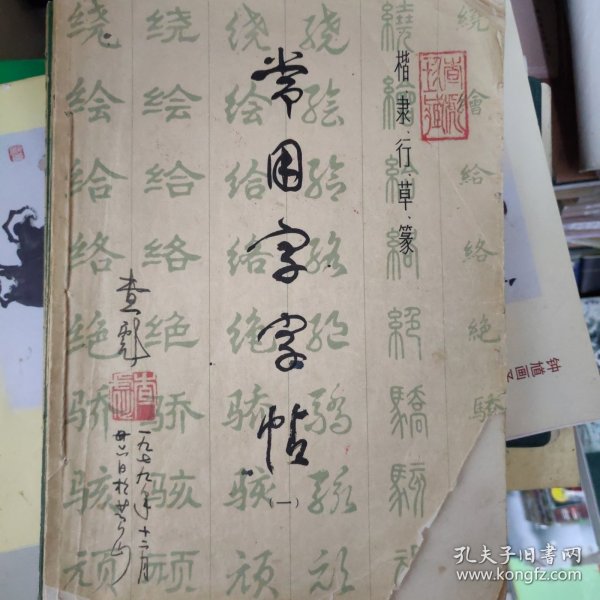 常用字字帖
(一)
楷、隶、行、草、篆
绕绘给络绝骄骇顽
绕绘给络绝骄骇顽
绕绘给络绝骄骇顽
绕绘给络绝骄骇顽
繞繪給絡絕驕駭頑
繞繪給絡絕驕
一九七九年十二月
廿六日于黄山
钟馗画
孔夫子旧书网
www.kongfz.com